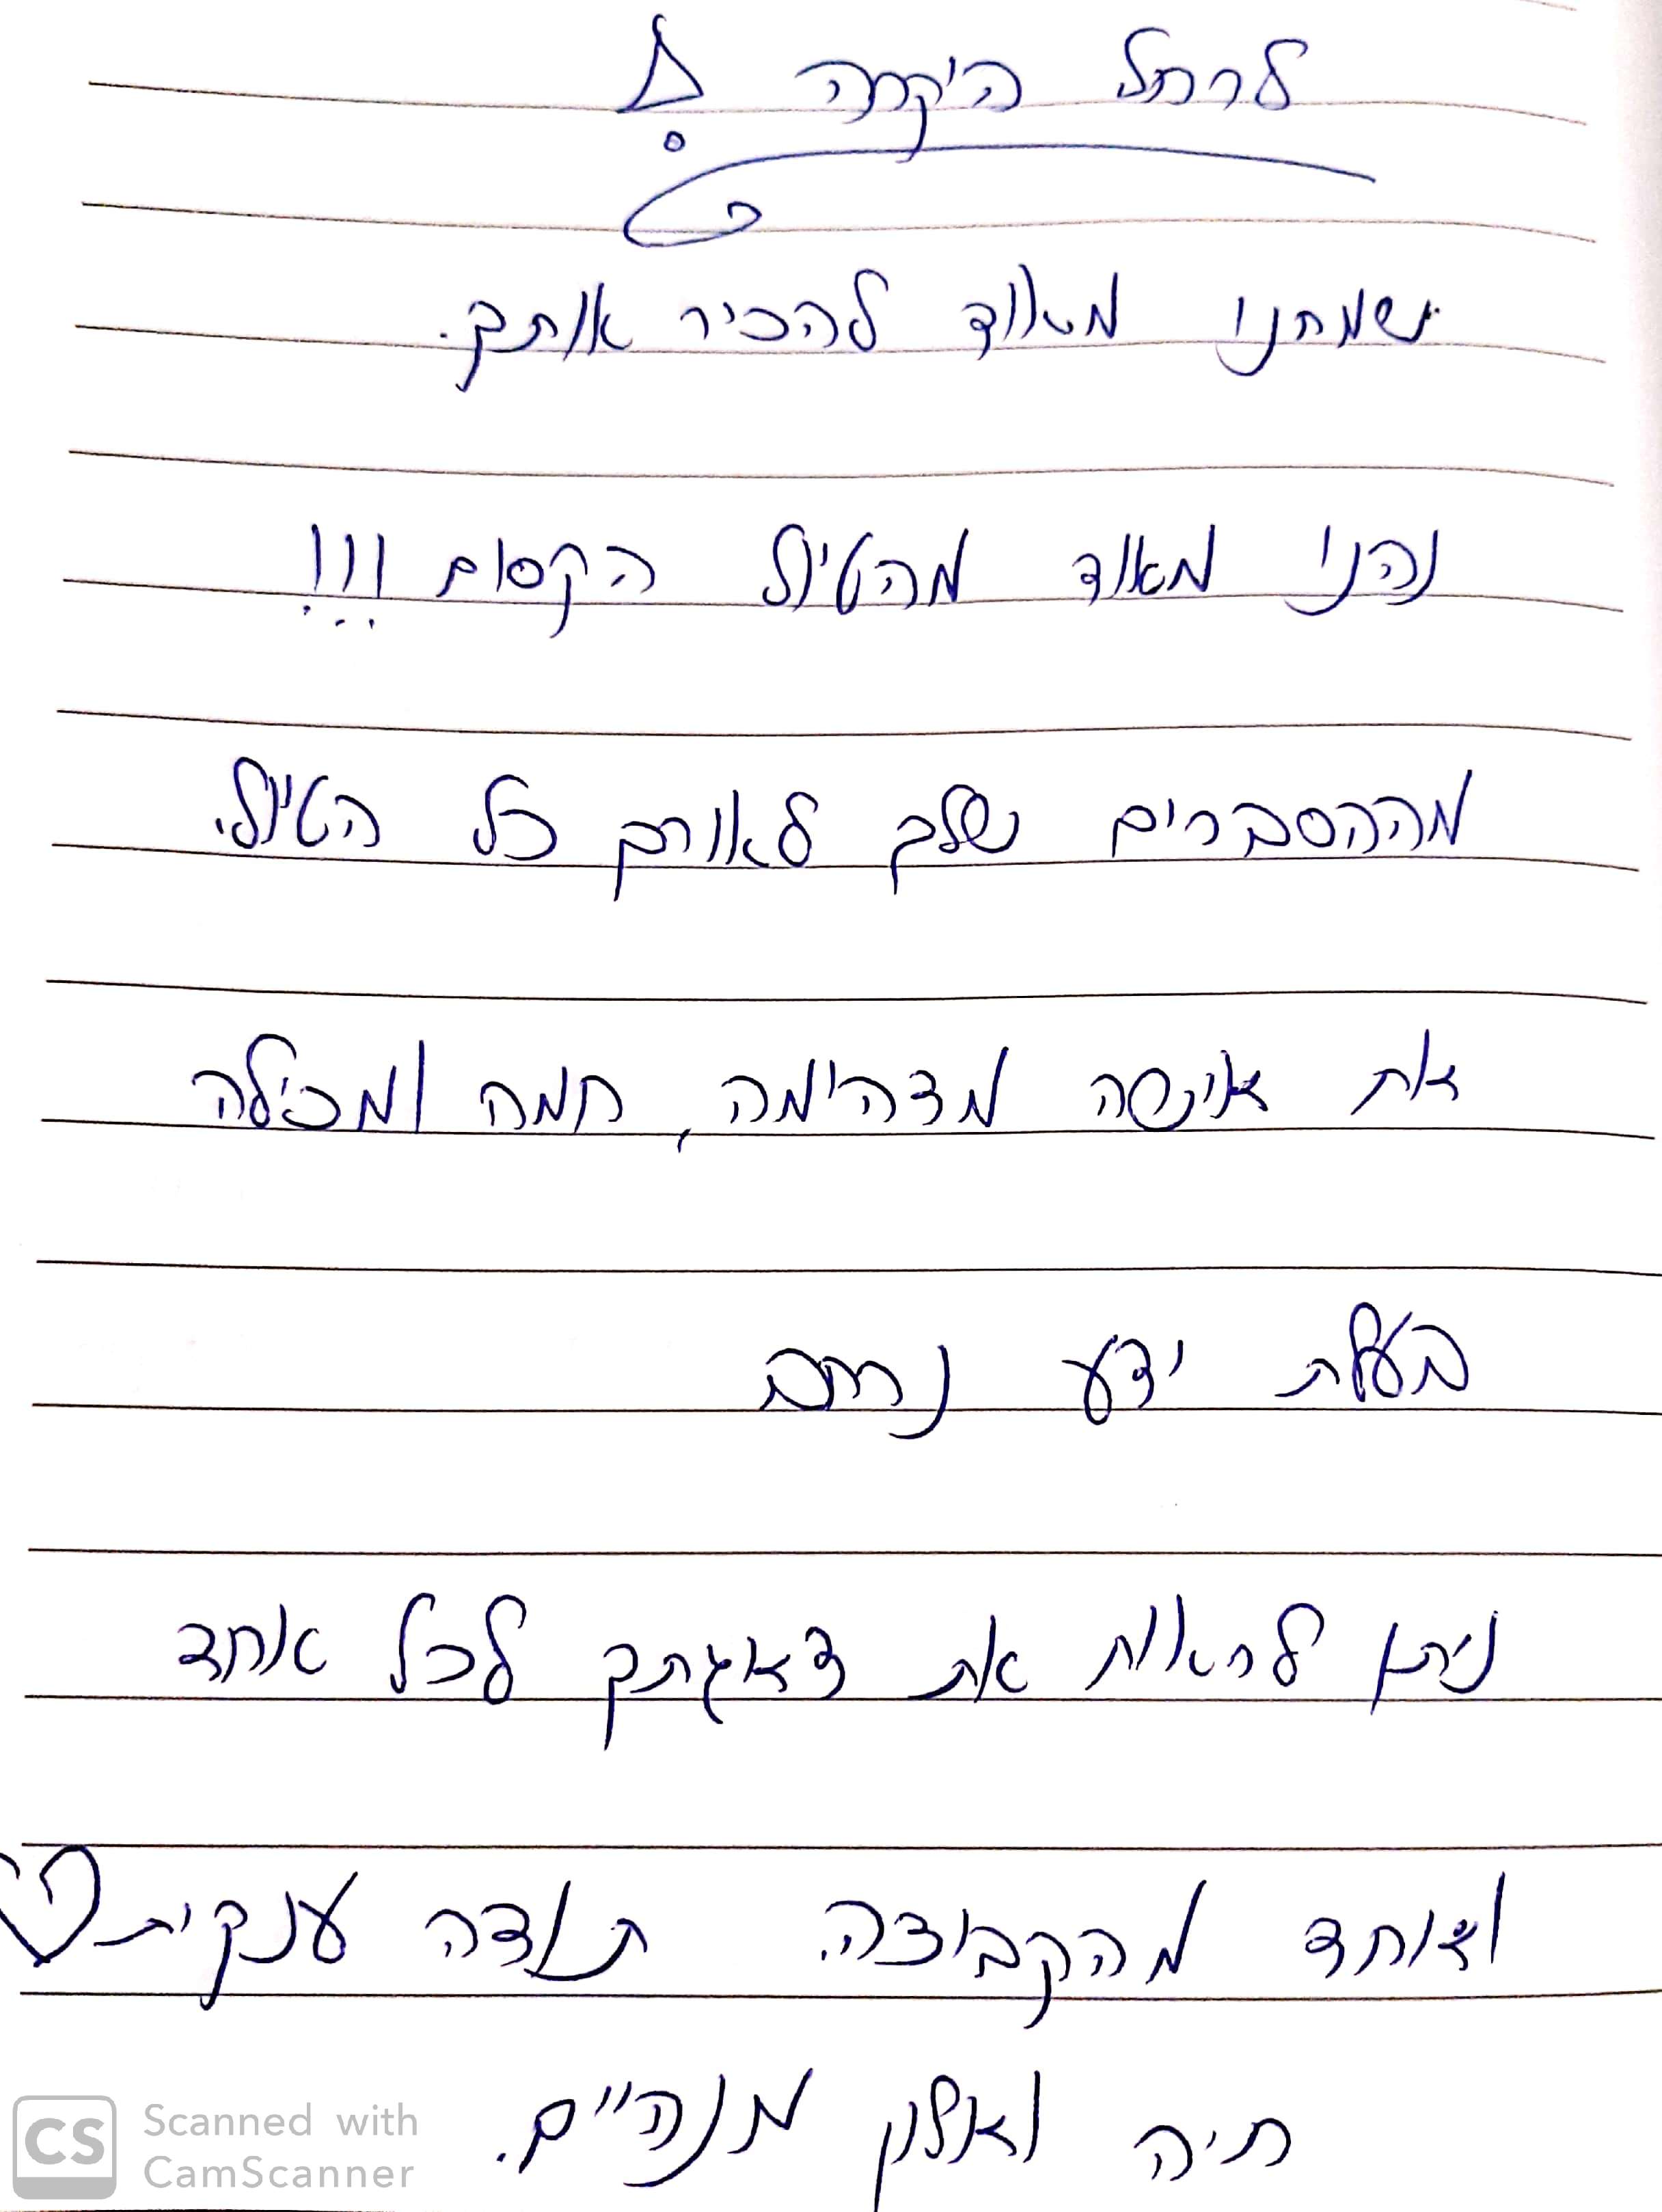 לרחל היקרה !
שמחנו מאוד להכיר אותך.
נהנו מאוד מהטיול הקסום !!!
מההסברים שלך לאורך כל הטיול.
את אישה מדהימה, חמה ומכילה
בעלת ידע נרחב
ניתן לראות את דאגתך לכל אחד
ואחד מהקבוצה. תודה ענקית
חיה ואלון
CS Scanned with
CamScanner